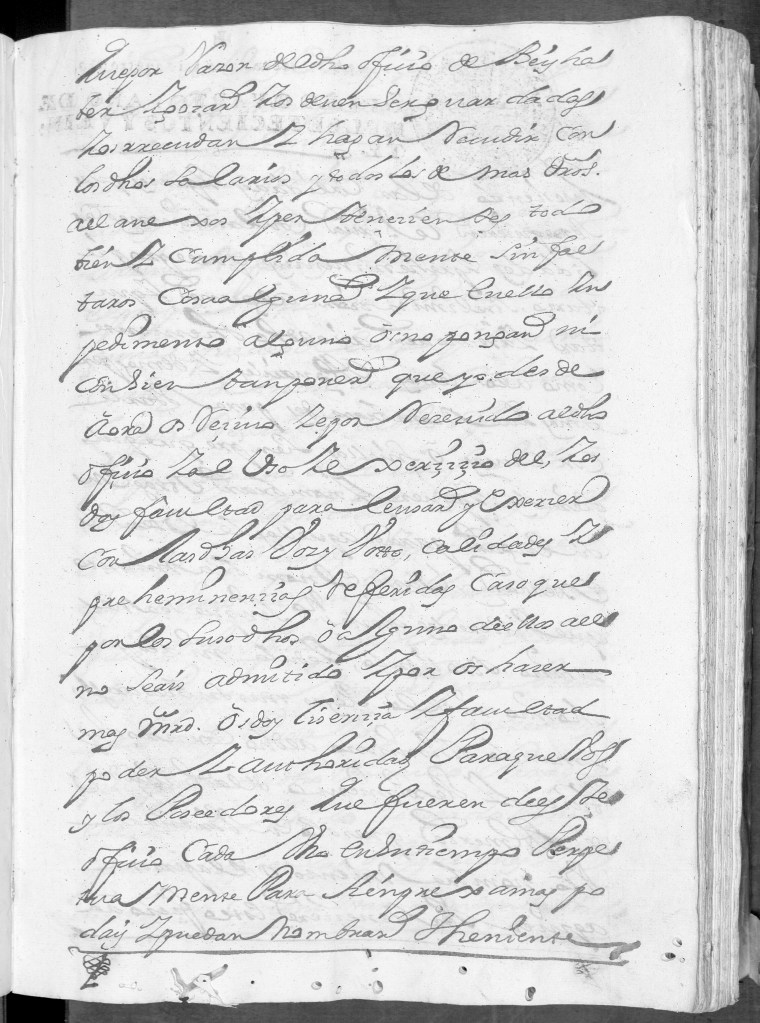 que por Razon del dho offiçio de Veis ha
ber Y gozar Y os deven ser guardadas
Y os rrecudan Y hagan Recudir con
los dhos salarios y todos los de mas dros.
a el anexos Y pertenecientes todo
bien Y Cumplida Mente sin fal
taros Cosa alguna Y que en ello Yn
pedimento alguno os no pongan ni
consientan poner que yo desde
aora os Recivo Y e por Recevido al dho
offiçio Y al Uso Y exerçiçio del, Y os
doy facultad para le usar y Exercer
Con las dhas Voz y Votto, calidades Y
preheminençias Referidas Caso que
por los susodhos o alguno de ellos a el
no seais admitido Y por os hacer
mas Mrd. os doy liçençia Y facultad
poder Y authoridad Para que Vos
y los Poseedores que fueren de este
offiçio Cada Uno en su tiempo Perpe
tua Mente Para sienpre xamas po
dais Y puedan Nombrar Theniente